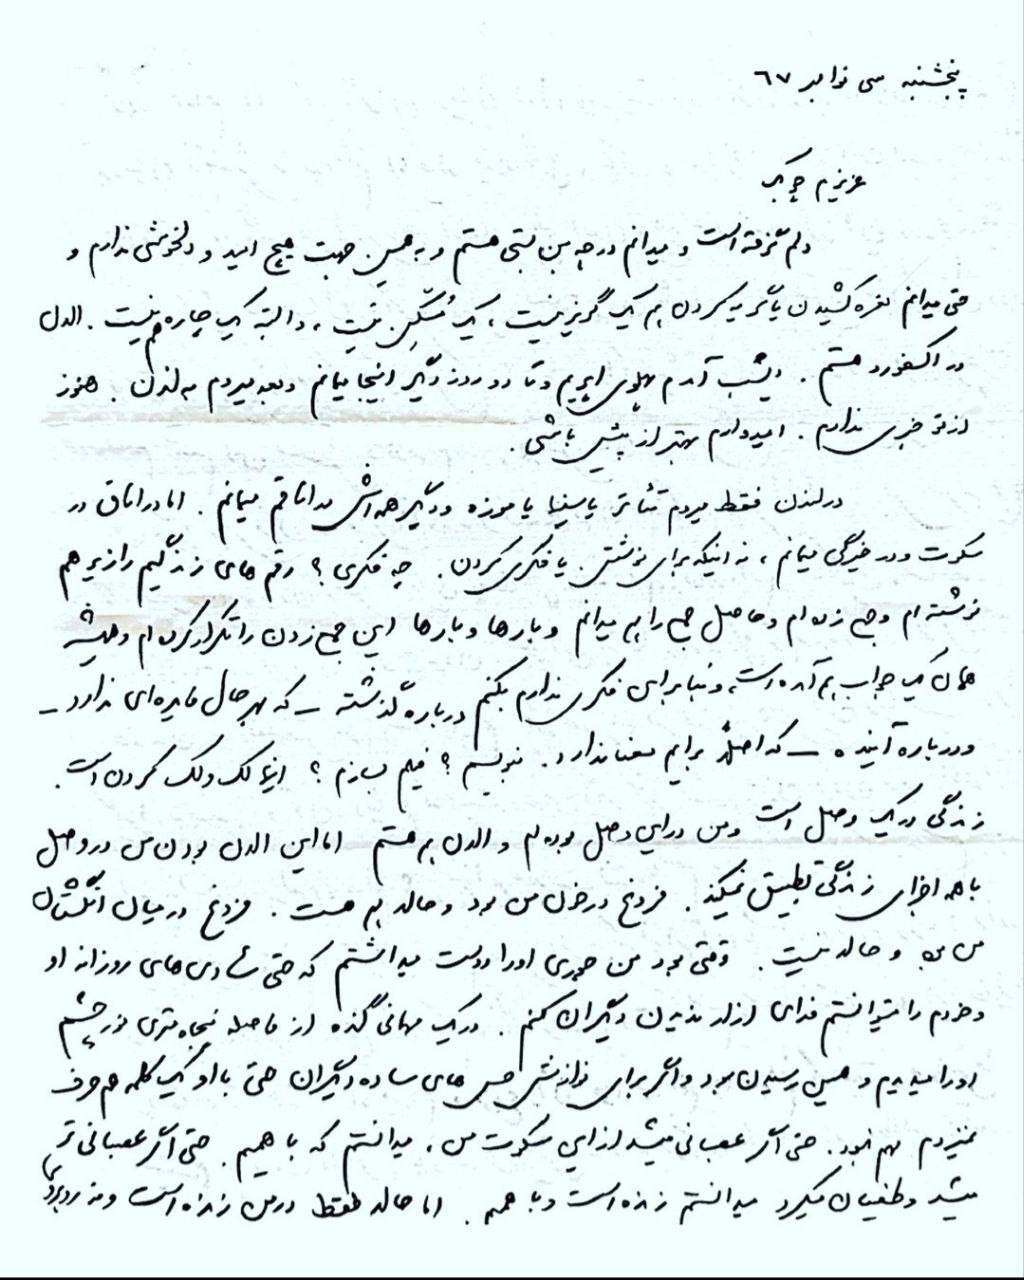 پنجشنبه سی نوامبر ٦٧
عزیزم چوبک
دلم گرفته است و میدانم در چه بن بستی هستم و به همین جهت هیچ امید و دلخوشی ندارم و
حتی میدانم نعره کشیدن یا گریه کردن هم یک گریز نیست، یک مُسکّن نیست، و البته یک چاره هم نیست. الان
در اکسفورد هستم. دیشب آمدم پهلوی ابریم و تا دو روز دیگر اینجا میمانم و بعد میروم به لندن. هنوز
از تو خبری ندارم. امیدوارم بهتر از پیش باشی.
در لندن فقط میروم تئاتر یا سینما یا موزه و دیگر همه اش در اتاقم میمانم. اما در اتاق در
سکوت و در خیرگی میمانم، نه اینکه برای نوشتن یا فکری کردن. چه فکری؟ رقم های زندگیم را زیر هم
نوشته ام و جمع زده ام و حاصل جمع را هم میدانم و بارها و بارها این جمع زدن را تکرار کرده ام و همیشه
همان یک جواب بهم آمده است، و بنابراین فکری ندارم بکنم درباره گذشته – که بهر حال فایده ای ندارد –
و درباره آینده – که اصلاً برایم معنا ندارد. بنویسم؟ فیلم بسازم؟ اینها لک ولک کردن است.
زندگی در یک وصل است و من در این وصل بوده ام و الان هم هستم اما این الان بودن من در وصل
با همه اجزای زندگی تطبیق نمیکند. فروغ در خون من بود و حالا هم هست. فروغ در میان انگشتان
من بود و حالا نیست. وقتی بود من جوری او را دوست میداشتم که حتی شادی های روزانه او
و خودم را میتوانستم فدای آزار ندیدن دیگران کنم. در یک مهمانی گنده از فاصله پنجاه متری نور چشم
او را میدیدم و همین رسیدن بود و اگر برای نوازش حس های ساده دیگران حتی با او یک کلمه هم حرف
نمیزدم مهم نبود. حتی اگر عصبانی میشد از این سکوت من، میدانستم که با همیم. حتی اگر عصبانی تر
میشد و طغیان میکرد میدانستم زنده است و با همیم. اما حالا فقط در من زنده است و نه روبروی